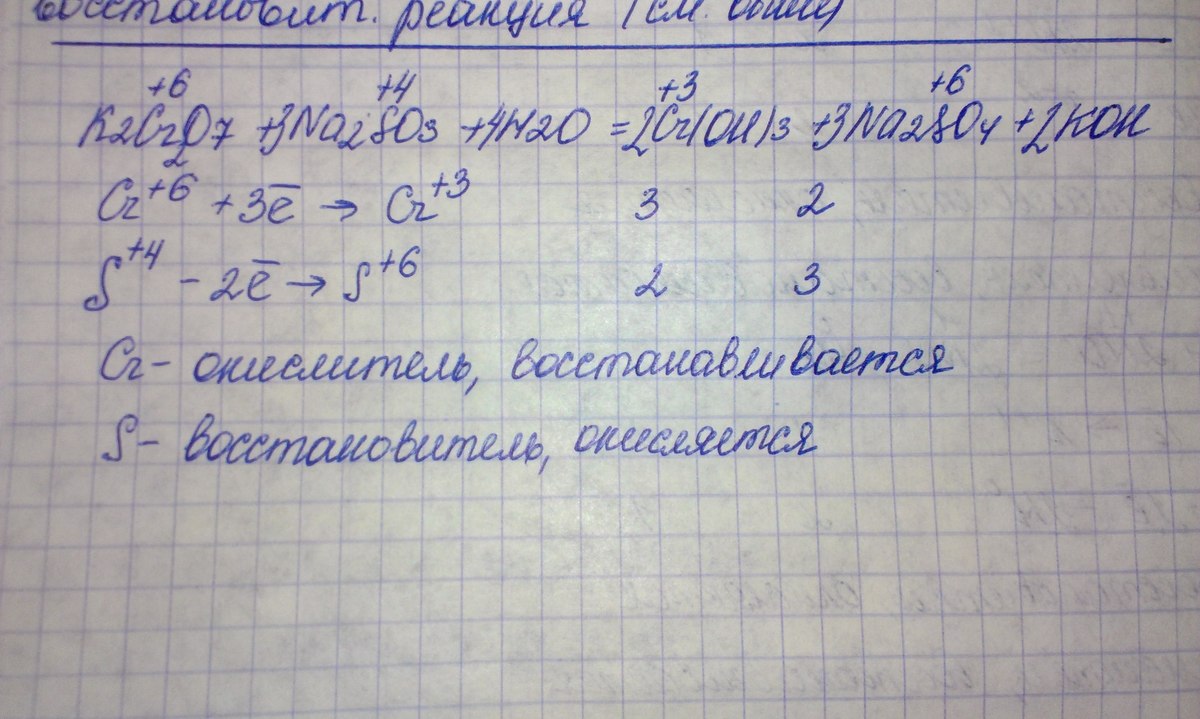 восстановит. реакция (см. выше)
+6 +4 +3 +6
K2Cr2O7 +3Na2SO3 +4H2O =2Cr(OH)3 +3Na2SO4 +2KOH
Cr+6 +3e̅ → Cr+3 3 2
S+4 - 2e̅ → S+6 2 3
Cr- окислитель, восстанавливается
S- восстановитель, окисляется